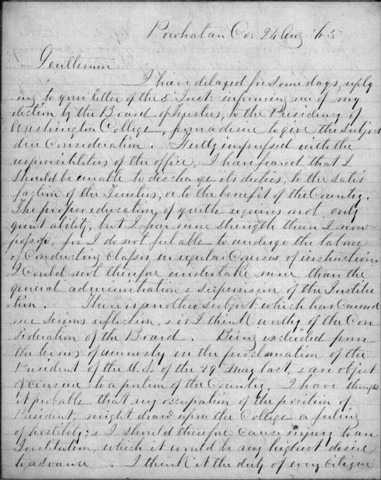 Powhatan Co. 24 Aug '65
Gentlemen
I have delayed for some days, reply
ing to your letter of the 5 Inst: informing me of my
election by the Board of Trustees, to the Presidency of
Washington College, from a desire to give the subject
due Consideration. Fully impressed with the
responsibilities of the office, I have feared that I
should be unable to discharge its duties, to the satis
faction of the Trustees, or to the benefit of the Country.
The proper education of youth requires not only
great ability, but I fear more strength than I now
possess, for I do not feel able to undergo the labour
of Conducting Classes in regular Courses of instruction.
I Could not therefore undertake more than the
general administration & supervision of the Institu
tion. There is another subject which has caused
me serious reflection, & is I think worthy of the Con
sideration of the Board. Being excluded from
the terms of amnesty in the proclamation of the
President of the U.S. of the 29 May last, & an object
of censure to a portion of the Country, I have thought
it probable that my occupation of the position of
President, might draw upon the College a feeling
of hostility; & I should therefore cause injury to an
Institution, which it would be my highest desire
to advance. I think it the duty of every citizen